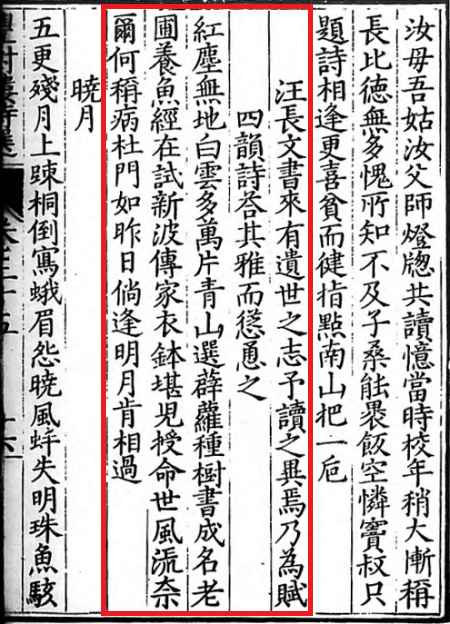 汝母吾姑汝父師燈牕共讀憶當時校年稍大漸稱
長比德無多愧所知不及子桑能褁飯空憐竇叔只
題詩相逢更喜貧而健指點南山把一巵
汪長文書來有遺世之志予讀之異焉乃為賦
四韻詩答其雅而慫恿之
紅塵無地白雲多萬片青山選薜蘿種樹書成名老
圃養魚經在試新波傳家衣鉢堪兒授命世風流奈
爾何稱病杜門如昨日倘逢明月肯相過
曉月
五更殘月上踈桐倒寫蛾眉怨曉風蚌失明珠魚駭